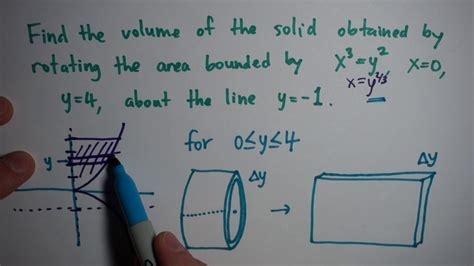 Find the volume of the solid obtained by
rotating the area bounded by x³=y² x=0,
x=y^{2/3}
y=4, about the line y=-1.
for 0≤y≤4
y
Δy
→
Δy